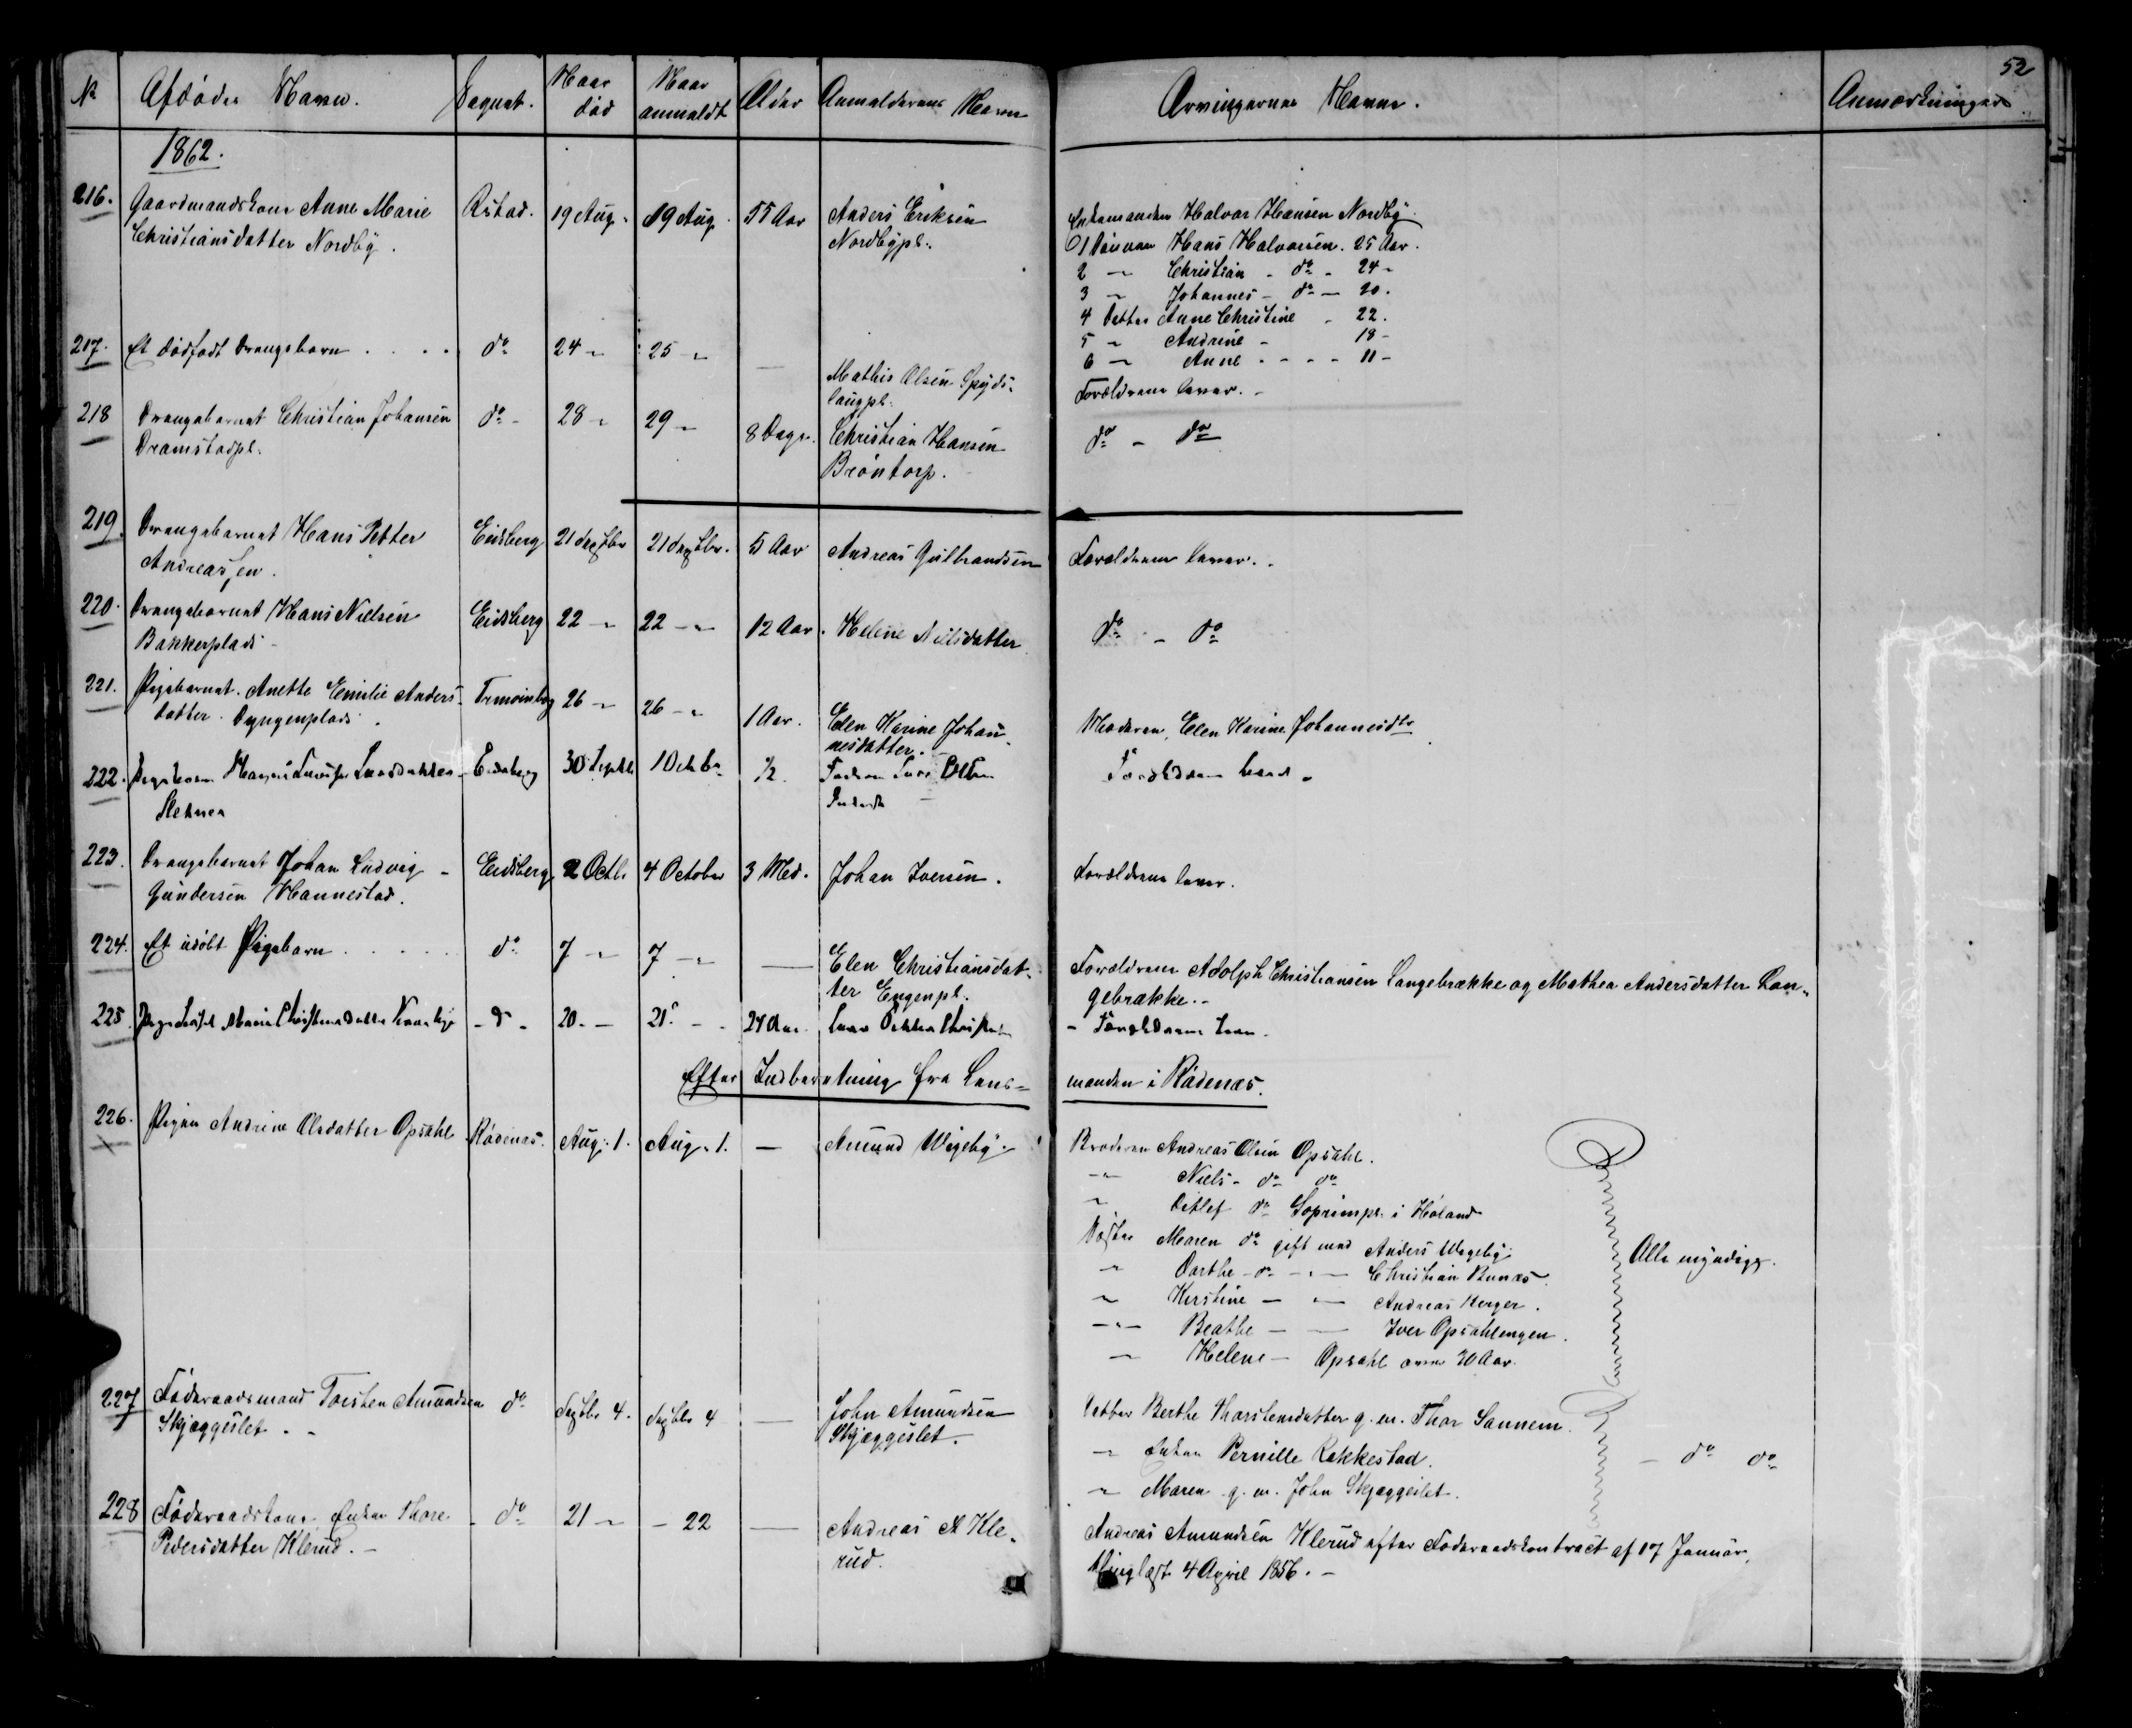 52
No Afdödes Navn. Sognet. Naar död Naar anmeldt Alder Anmelderens Navn Arvingernes Navne. Anmærkninger
1862.
216. Gaardmandskone Anne Marie Christiansdatter Nordby. Røstad. 19 Aug. 19 Aug. 55 Aar Anders Eriksen Nordbypl.
Enkemanden Halvor Hansen Nordby
1 Sønnen Hans Halvorsen. 25 Aar.
2 " Christian - do - 24 -
3 " Johannes - do - 20.
4 Datter Anne Christine - 22.
5 " Andrine - 18 -
6 " Anne - - - - 11 -
217. Et dödfödt Drengebarn . . . . do 24 " 25 " — Mathis Olsen Spydslaugpl. Forældrene lever. -
218 Drengebarnet Christian Johansen Dramstadpl. do - 28 " 29 " 8 Dage. Christian Hansen Bröntorp. do - do
219. Drengebarnet Hans Petter Andreassen. Eidsberg 21 Septbr 21 Septbr. 5 Aar Andreas Gulbrandsen Forældrene lever. .
220. Drengebarnet Hans Nielsen Bakkerplads - Eidsberg 22 " 22 - " 12 Aar. Helene Nielsdatter do - do
221. Pigebarnet. Anette Emilie Andersdatter. Dyngenplads. Trømborg 26 " 26 - " 1 Aar. Elen Karine Johannesdatter. Moderen, Elen Karine Johannesdtr
222. Pigebarn Larsdatter Sletner Eidsberg 30 Septbr 1 Octbr 1/2 Faderen Lars Olsen Forældrene lever.
223. Drengebarnet Johan Ludvig Gundersen Hannestad. Eidsberg 2 Octb. 4 October 3 Md. Johan Iversen. Forældrene lever.
224. Et udöbt Pigebarn . . . . . do 7 " 7 - " — Elen Christiansdatter Engenpl. Forældrene Adolph Christiansen Langebrække og Mathea Andersdatter Langebrække. -
225. Marie Christiansdatter - do - 20. - 21. - 24 Aar. - Forældrene lever.
Efter Indberetning fra Lensmanden i Rödenæs.
226. Pigen Andrine Olsdatter Opsahl Rödenæs. Aug. 1. Aug. 1. — Amund Wegeby.
Broderen Andreas Olsen Opsahl.
" Niels - do do
" Ditlef do Soprimpl. i Höland
Söster Maren do gift med Anders Wegeby.
" Dorthe - do - " — Christian Bunæs
" Kirstine — " — Andreas Kerger.
" Beathe — — Iver Opsahlengen.
" Helene — Opsahl over 30 Aar.
Alle myndige.
227 Föderaadsmand Torsten Amundsen Skjæggeslet. . - do Septbr. 4. Septbr. 4 — John Amundsen Skjæggeslet.
Datter Berthe Thorstensdatter g. m. Thor Sannem.
" Enken Pernille Rakkestad.
" Maren g. m. John Skjæggeslet.
— do do
228 Föderaadskone, Enken Thore Pedersdatter Klerud. - - do 21 " - 22 — Andreas A Klerud.
Andreas Amundsen Klerud efter Föderaadskontract af 17 Januar, thinglæst 4 April 1856. -